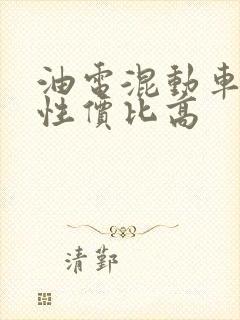 油電混動車
性價比高
清鄞